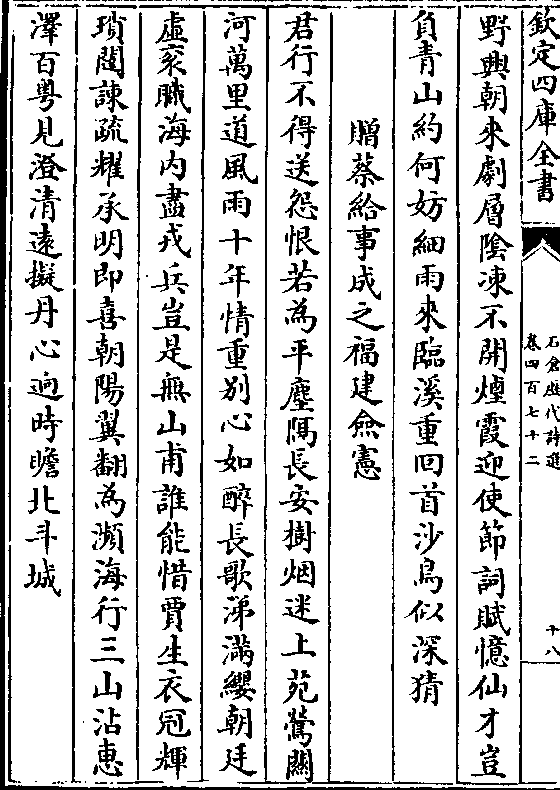 欽定四庫全書
石倉歷代詩選
卷四百七十二
十八
野興朝來劇層陰凍不開煙霞迎使節詞賦憶仙才豈
負青山約何妨細雨來臨溪重回首沙鳥似深猜
贈蔡給事成之福建僉憲
君行不得送怨恨若為平塵隔長安樹烟迷上苑鶯關
河萬里道風雨十年情重别心如醉長歌涕滿纓朝廷
虛衮職海内盡戎兵豈是無山甫誰能惜賈生衣冠輝
瑣闥諫疏耀承明即喜朝陽翼翻為瀕海行三山沾惠
澤百粤見澄清遠擬丹心逈時瞻北斗城